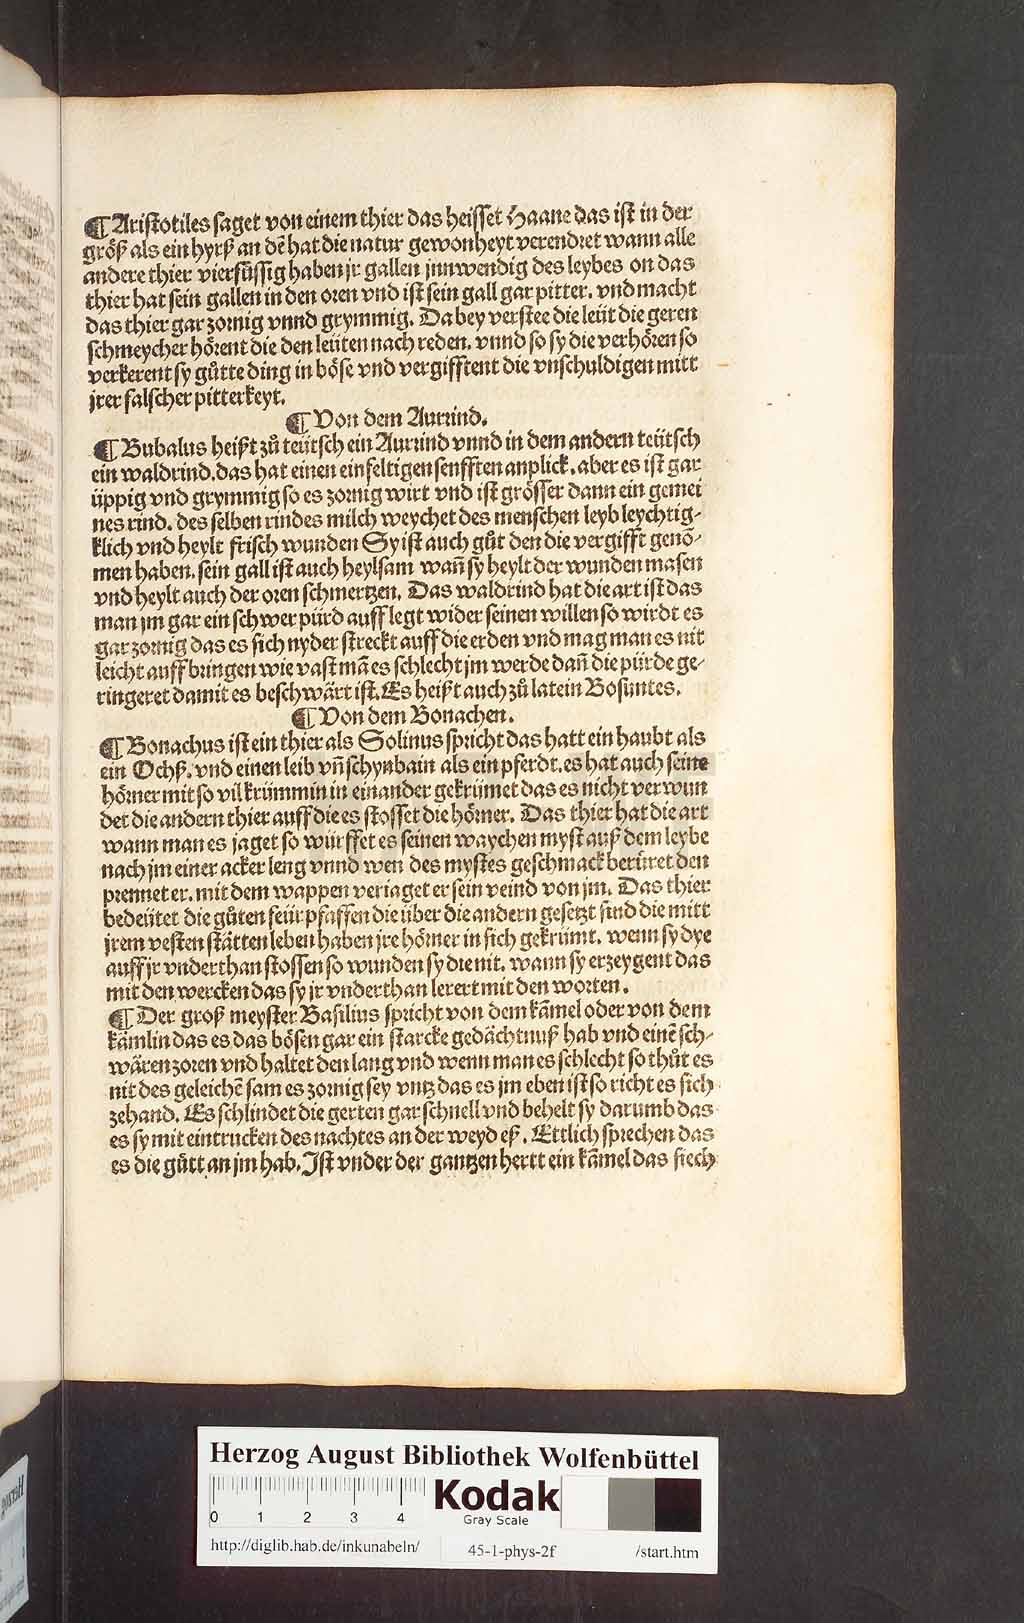 ¶ Aristotiles saget von einem thier das heisset Haane das ist in der
größ als ein hyrß an dē hat die natur gewonheyt verendret wann alle
andere thier vierfüssig haben jr gallen jnnwendig des leybes on das
thier hat sein gallen in den oren vnd ist sein gall gar pitter. vnd macht
das thier gar zornig vnnd grymmig. Da bey verstee die leüt die geren
schmeycher hörent die den leüten nach reden. vnnd so sy die verhören so
verkerent sy gůtte ding in böse vnd vergifftent die vnschuldigen mitt
jrer falscher pitterkeyt.
¶ Von dem Aurrind.
¶ Bubalus heißt zů teütsch ein Aurrind vnnd in dem andern teütsch
ein waldrind. das hat einen einfeltigen senfften anplick. aber es ist gar
üppig vnd grymmig so es zornig wirt vnd ist grösser dann ein gemei
nes rind. des selben rindes milch weychet des menschen leyb leychtig-
klich vnd heylt frisch wunden Sy ist auch gůt den die vergifft genō-
men haben. sein gall ist auch heylsam wañ sy heylt der wunden masen
vnd heylt auch der oren schmertzen. Das waldrind hat die art ist das
man jm gar ein schwer pürd auff legt wider seinen willen so wirdt es
gar zornig das es sich nyder streckt auff die erden vnd mag man es nit
leicht auff bringen wie vast mā es schlecht jm werde dañ die pürde ge-
ringeret damit es beschwärt ist. Es heißt auch zů latein Bosuntes.
¶ Von dem Bonachen.
¶ Bonachus ist ein thier als Solinus spricht das hatt ein haubt als
ein Ochß. vnd einen leib vñ schynbain als ein pferdt. es hat auch seine
hörner mit so vil krümmin in einander gekrümet das es nicht verwun
det die andern thier auff die es stosset die hörner. Das thier hat die art
wann man es jaget so würffet es seinen waychen myst auß dem leybe
nach jm einer acker leng vnnd wen des mystes geschmack berüret den
prennet er. mit dem wappen veriaget er sein veind von jm. Das thier
bedeütet die gůten feür pfaffen die über die andern gesetzt sind die mitt
jrem vesten stätten leben haben jre hörner in sich gekrümt. wenn sy dye
auff jr vnderthan stossen so wunden sy die nit. wann sy erzeygent das
mit den wercken das sy jr vnderthan lerert mit den worten.
¶ Der groß meyster Basilius spricht von dem kāmel oder von dem
kämlin das es das bösen gar ein starcke gedächtnuß hab vnd einē sch-
wären zoren vnd haltet den lang vnd wenn man es schlecht so thůt es
nit des geleichē sam es zornig sey vntz das es jm eben ist so richt es sich
zehand. Es schlindet die gerten gar schnell vnd behelt sy darumb das
es sy mit eintrucken des nachtes an der weyd eß. Ettlich sprechen das
es die gůtt an jm hab. Ist vnder der gantzen hertt ein kāmel das siech
Herzog August Bibliothek Wolfenbüttel
0 1 2 3 4
Kodak
Gray Scale
http://diglib.hab.de/inkunabeln/ 45-1-phys-2f /start.htm